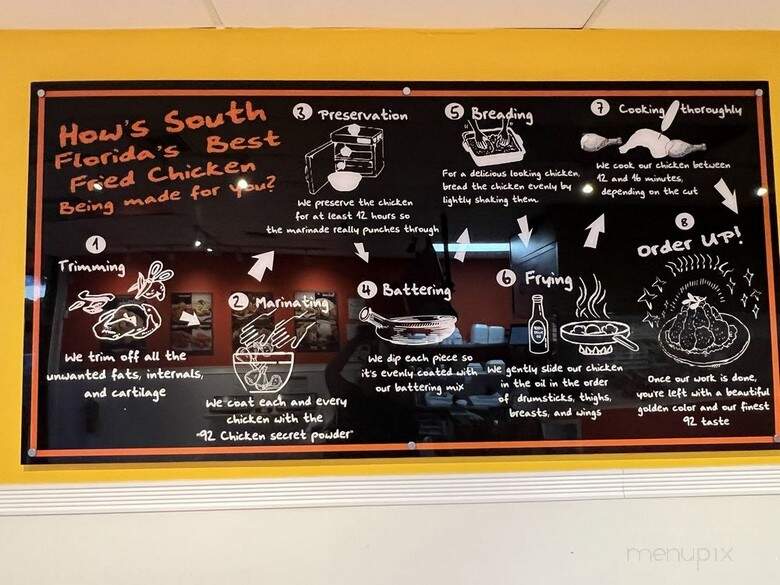 How's South
Florida's Best
Fried Chicken
Being made for you?
1
Trimming
We trim off all the
unwanted fats, internals,
and cartilage
2 Marinating
We coat each and every
chicken with the
"92 Chicken secret powder"
3 Preservation
We preserve the chicken
for at least 12 hours so
the marinade really punches through
4 Battering
We dip each piece so
it's evenly coated with
our battering mix
5 Breading
For a delicious looking chicken,
bread the chicken evenly by
lightly shaking them.
6 Frying
We gently slide our chicken
in the oil in the order
of drumsticks, thighs,
breasts, and wings
7 Cooking thoroughly
We cook our chicken between
12 and 16 minutes,
depending on the cut
8
Order UP!
Once our work is done,
you're left with a beautiful
golden color and our finest
92 taste
menupix